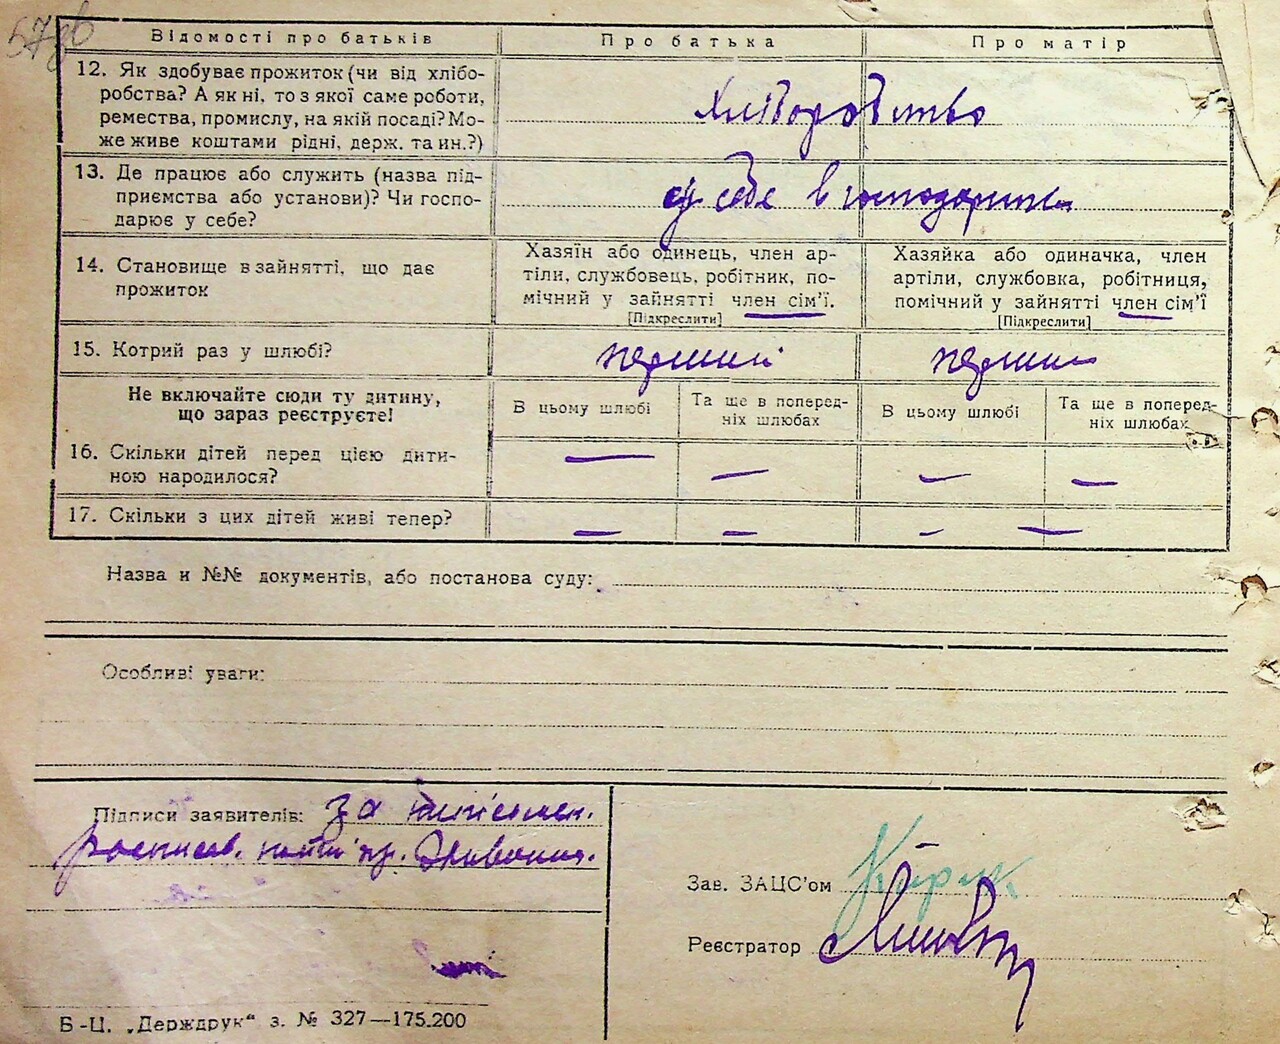 57зв
Відомості про батьків Про батька Про матір
12. Як здобуває прожиток (чи від хлібо-
робства? А як ні, то з якої саме роботи,
ремества, промислу, на якій посаді? Мо-
же живе коштами рідні, держ. та ин.?)
Хліборобство
13. Де працює або служить (назва під-
приємства або установи)? Чи госпо-
дарює у себе?
у себе в господарстві
14. Становище в зайнятті, що дає
прожиток
Хазяїн або одинець, член ар-
тіли, службовець, робітник, по-
мічний у зайнятті член сім'ї.
[Підкреслити]
Хазяйка або одиначка, член
артіли, службовка, робітниця,
помічний у зайнятті член сім'ї
[Підкреслити]
15. Котрий раз у шлюбі? перший перший
Не включайте сюди ту дитину,
що зараз реєструєте!
В цьому шлюбі
Та ще в поперед-
ніх шлюбах
В цьому шлюбі
Та ще в поперед-
ніх шлюбах
16. Скільки дітей перед цією дити-
ною народилося?
— — — —
17. Скільки з цих дітей живі тепер? — — — —
Назва и №№ документів, або постанова суду:
Особливі уваги:
Підписи заявителів: за
Зав. ЗАЦС'ом
Реєстратор
Б-Ц. „Держдрук“ з. № 327—175.200